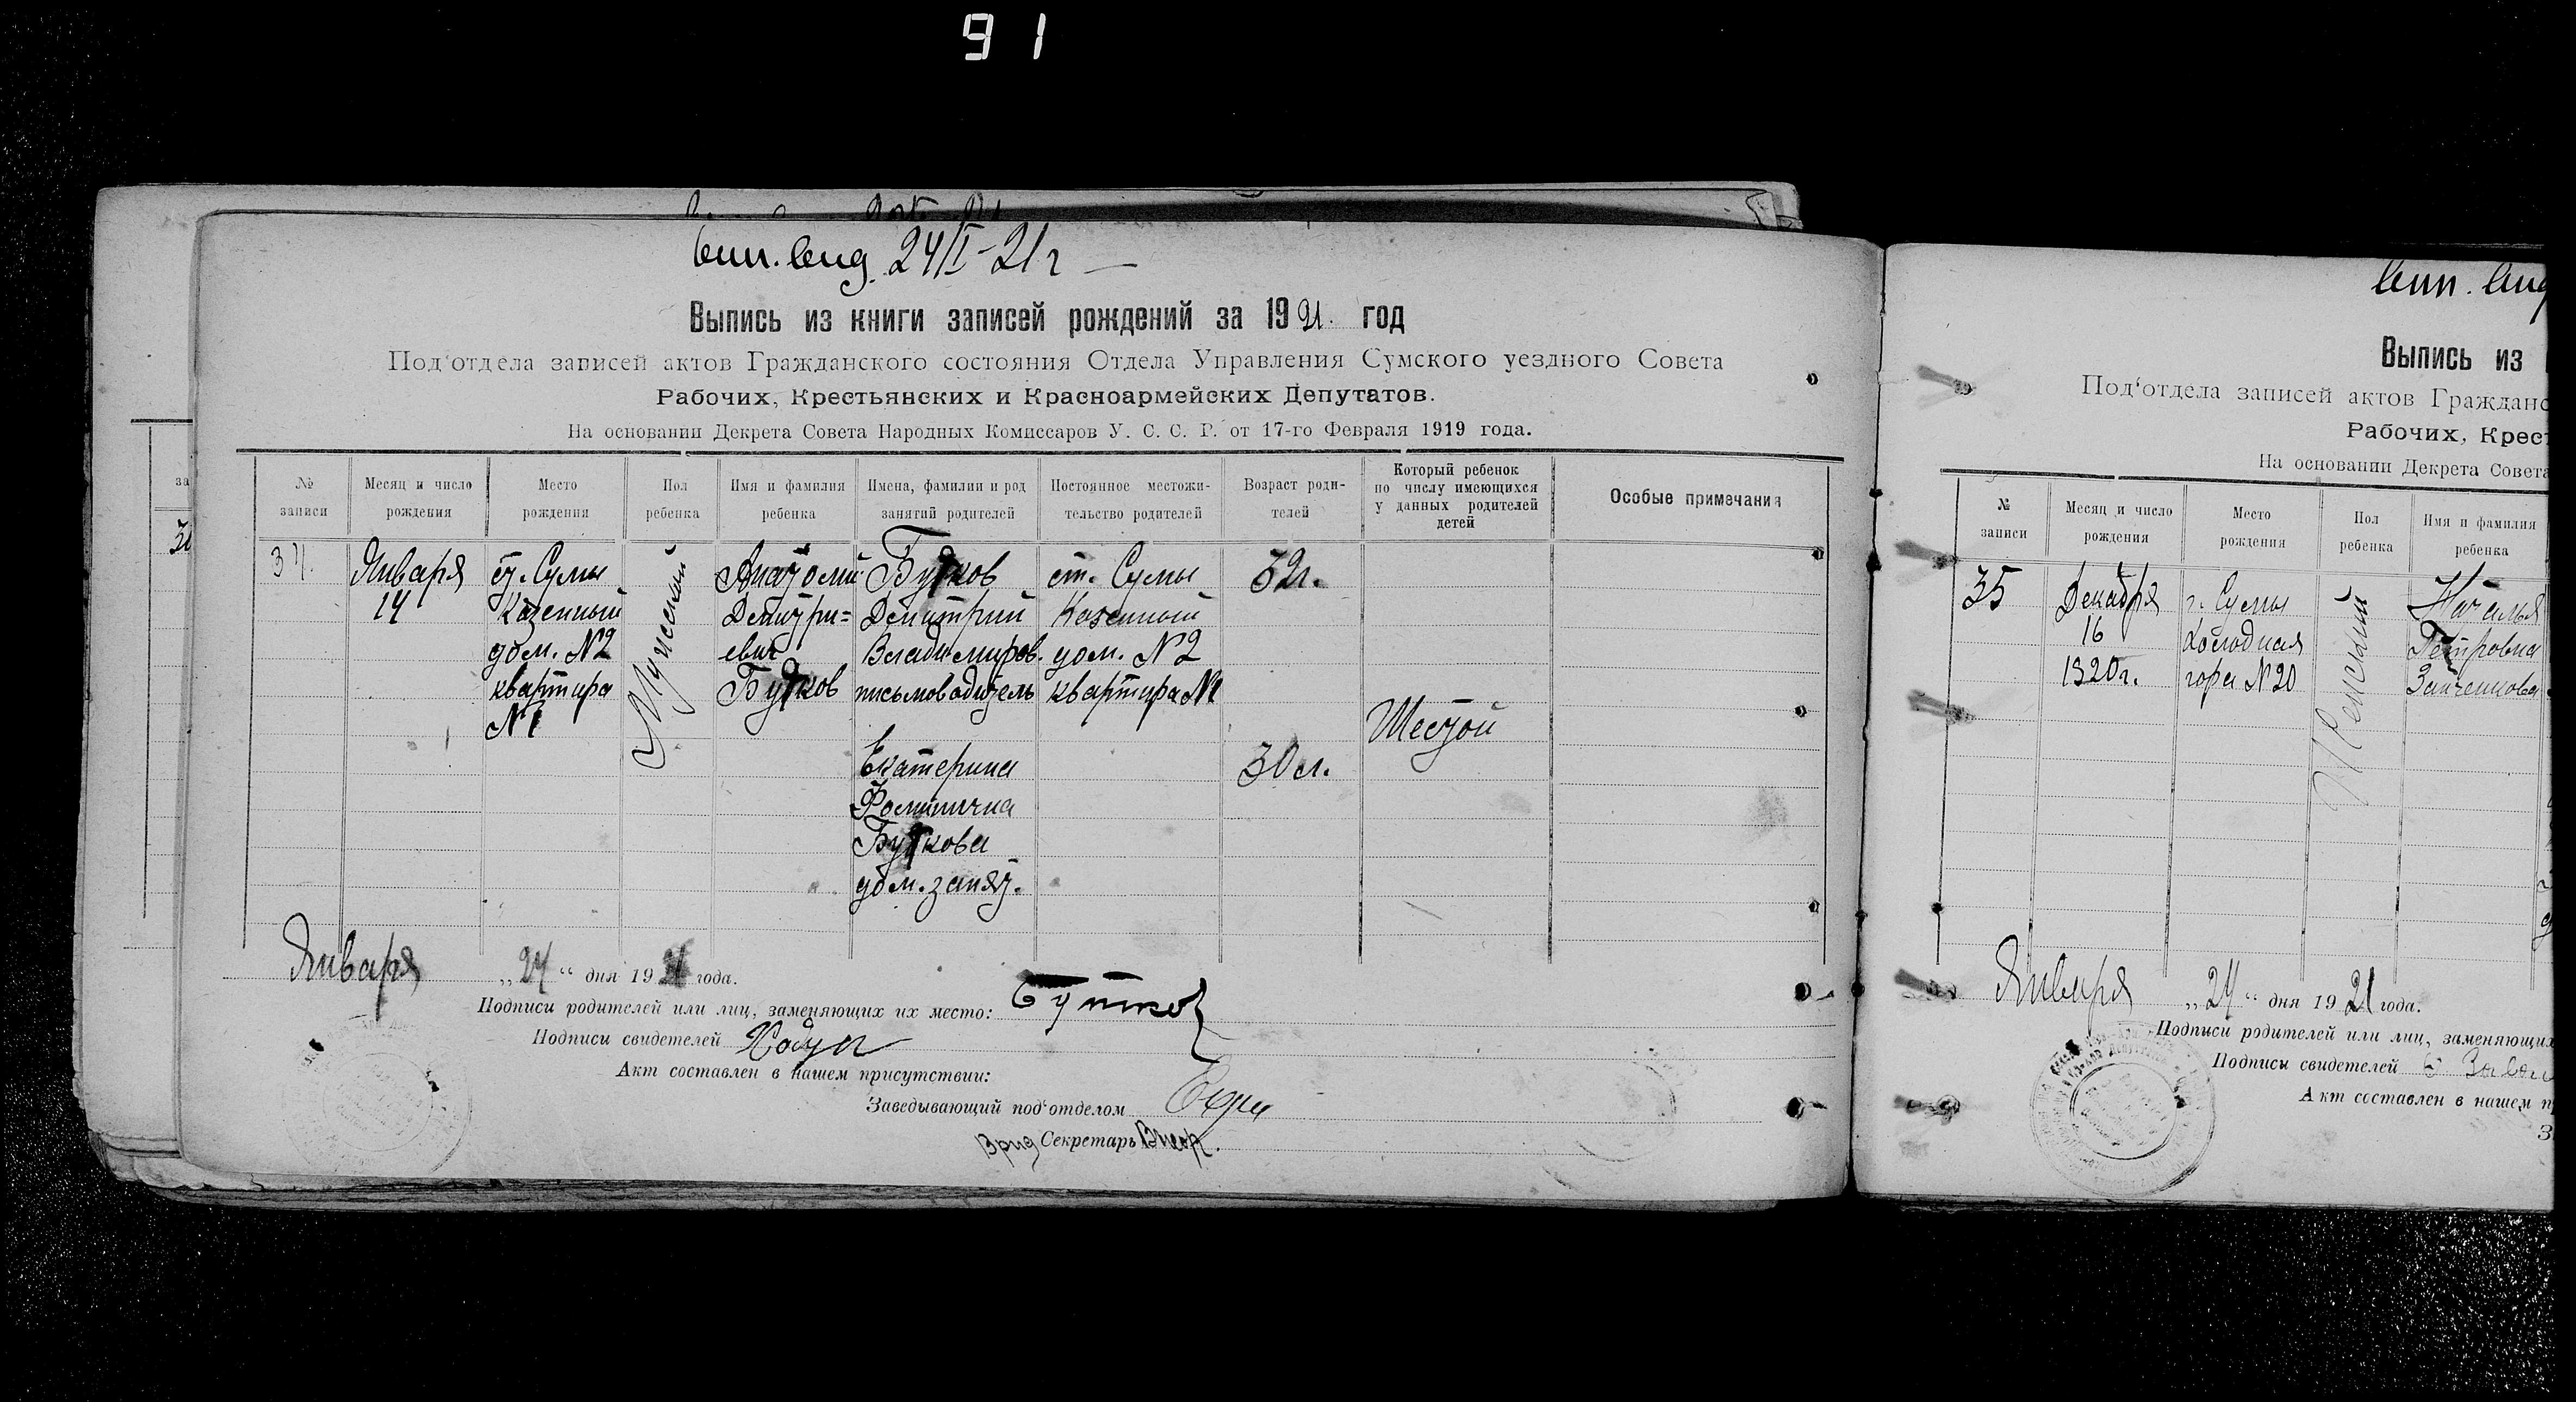 91
24/I-21 г
Выпись из книги записей рождений за 1921 год
Под'отдела записей актов Гражданского состояния Отдела Управления Сумского уездного Совета
Рабочих, Крестьянских и Красноармейских Депутатов.
На основании Декрета Совета Народных Комиссаров У. С. С. Р. от 17-го Февраля 1919 года.
№ записи
Месяц и число рождения
Место рождения
Пол ребенка
Имя и фамилия ребенка
Имена, фамилии и род занятий родителей
Постоянное местожи-тельство родителей
Возраст роди-телей
Который ребенок по числу имеющихся у данных родителей детей
Особые примечания
34.
Января
14
ст. Сумы
Казенный
дом. №2
квартира
№1
Мужской
Анатолий
Демитри=
евич
Бутков
Бутков
Демитрий
Владимиров.
письмоводитель
Екатерина
Фоминична
Буткова
дом. занят.
ст. Сумы
Казенный
дом. №2
квартира №1
32 г.
30 л.
Шестой
Января „24“ дня 1921 года.
Подписи родителей или лиц, заменяющих их место: Бутков
Подписи свидетелей
Акт составлен в нашем присутствии:
Заведывающий под'отделом
Врид Секретарь
Выпись из
Под'отдела записей актов Гражданс
Рабочих, Крест
На основании Декрета Совета
№ записи
Месяц и число рождения
Место рождения
Пол ребенка
Имя и фамилия ребенка
35
Декабря
16
1920 г.
г. Сумы
Холодная
гора №20
Женский
Наталья
Петровна
Января „24“ дня 1921 года.
Подписи родителей или лиц, заменяющих
Подписи свидетелей
Акт составлен в нашем п
З